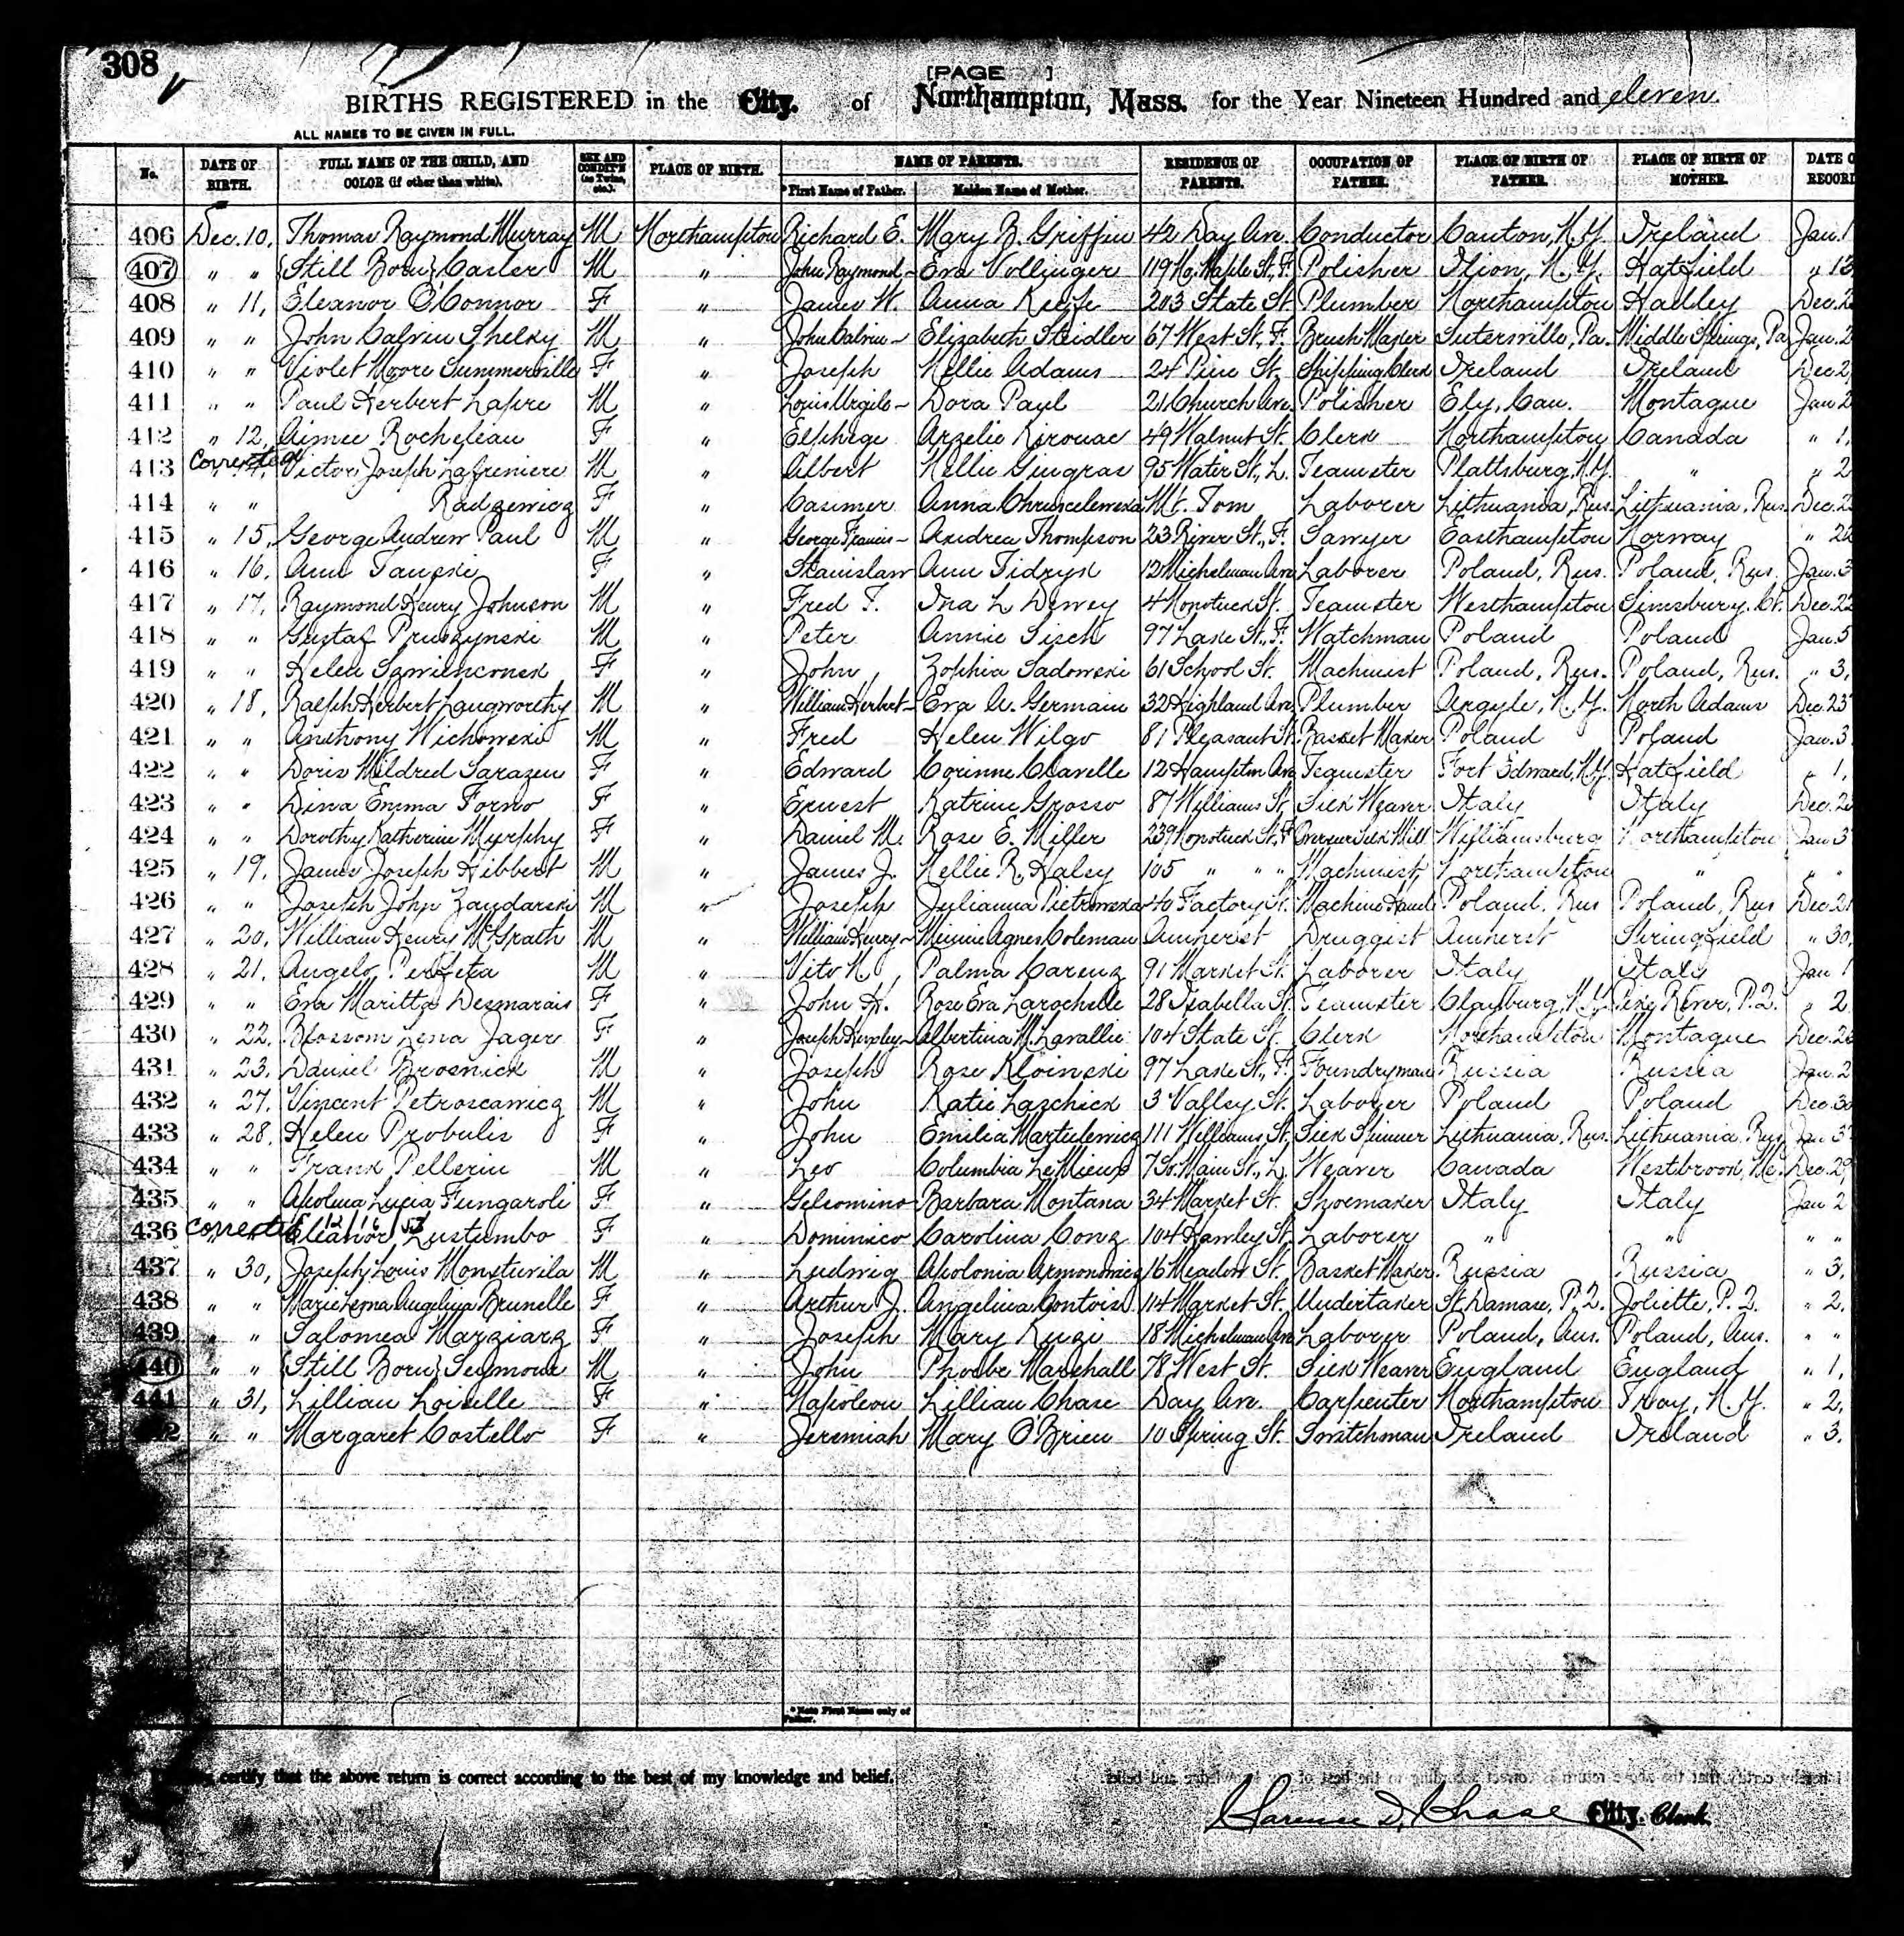 308
[PAGE ]
BIRTHS REGISTERED in the City. of Northampton, Mass. for the Year Nineteen Hundred and eleven.
ALL NAMES TO BE GIVEN IN FULL.
No. DATE OF BIRTH. FULL NAME OF THE CHILD, AND COLOR (if other than white). SEX AND CONDIT'N (as Twins, etc.) PLACE OF BIRTH. NAME OF PARENTS. RESIDENCE OF PARENTS. OCCUPATION OF FATHER. PLACE OF BIRTH OF FATHER. PLACE OF BIRTH OF MOTHER. DATE O RECORD
*First Name of Father. Maiden Name of Mother.
406 Dec. 10, Thomas Raymond Murray M Northampton Richard E. Mary B. Griffin 42 Day Ave. Conductor Canton, N.Y. Ireland Jan. 1
407 " " {Still Born} Casler M " John Raymond - Eva Vollinger 119 No. Maple St., F. Polisher Ilion, N.Y. Hatfield " 13
408 " 11, Eleanor O'Connor F " James W. Anna Keefe 203 State St. Plumber Northampton Hadley Dec. 2
409 " " John Calvin Shelky M " John Calvin - Elizabeth Steidler 67 West St., F. Brush Maker Sutersville, Pa. Middle Springs, Pa Jan. 2
410 " " Violet Moore Summerville F " Joseph Nellie Adams 24 Pine St. Shipping Clerk Ireland Ireland Dec. 2
411 " " Paul Herbert Lapre M " Louis Virgile - Dora Paul 21 Church Ave. Polisher Ely, Can. Montague Jan 2
412 " 12, Aimee Rocheleau F " Elphege Arzelie Kirouac 49 Walnut St. Clerk Northampton Canada " 1,
413 Corrected Victor Joseph Lafreniere M " Albert Nellie Gingras 95 Water St., L. Teamster Plattsburg, N.Y. " " 2
414 " " Radzewicz F " Casimer Anna Mt. Tom Laborer Lithuania, Rus. Lithuania, Rus. Dec. 2
415 " 15, George Andrew Paul M " George Francis - Andrea Thompson 23 River St., F. Sawyer Easthampton Norway " 22
416 " 16, Ann Tanski F " Stanislaw Ann Tidryk 12 Michelman Ave Laborer Poland, Rus. Poland, Rus. Jan. 3
417 " 17, Raymond Henry Johnson M " Fred T. Ina L Dewey 4 Nonotuck St. Teamster Westhampton Simsbury, Ct. Dec. 22
418 " " Gustaf Pruszynski M " Peter Annie Sisch 97 Lake St., F. Watchman Poland Poland Jan. 5
419 " " Helen F " John Zophia Sadowski 61 School St. Machinist Poland, Rus. Poland, Rus. " 3,
420 " 18, Ralph Herbert Langworthy M " William Herbert - Eva A. Germain 32 Highland Ave. Plumber Argyle, N.Y. North Adams Dec. 23
421 " " Anthony Wichowski M " Fred Helen Wilgo 81 Pleasant St. Basket Maker Poland Poland Jan. 3
422 " " Doris Mildred Sarazen F " Edward Corinne Clavelle 12 Hampton Ave Teamster Fort Edward, N.Y. Hatfield " 1,
423 " " Dina Emma Forno F " Ernest Katrine Grosso 87 Williams St. Silk Weaver Italy Italy Dec. 2
424 " " Dorothy Katherine Murphy F " Daniel M. Rose E. Miller 239 Nonotuck St., F Overseer Silk Mill Williamsburg Northampton Jan 3
425 " 19, James Joseph Hibbert M " James J. Nellie R. Haley 105 " " " Machinist Northampton " " "
426 " " Joseph John Zandarski M " Joseph Julianna Pietrowska 40 Factory St. Machine Hand Poland, Rus Poland, Rus Dec. 21
427 " 20, William Henry McGrath M " William Henry - Minnie Agnes Coleman Amherst Druggist Amherst Springfield " 30,
428 " 21, Angelo Perfetta M " Vito N. Palma Carenz 91 Market St. Laborer Italy Italy Jan 1
429 " " Eva Maritta Desmarais F " John H. Rose Eva Larochelle 28 Isabella St. Teamster Clayburg, N.Y. Pike River, P.Q. " 2
430 " 22, Blossom Lena Jager F " Joseph Kempley - Albertina M. Lavallie 104 State St. Clerk Northampton Montague Dec. 26
431 " 23, Daniel Brosnick M " Joseph Rose Kloinski 97 Lake St., F. Foundryman Russia Russia Jan. 2
432 " 27, Vincent Petroscawicz M " John Katie Laschick 3 Valley St. Laborer Poland Poland Dec. 30
433 " 28, Helen Probulis F " John Emilia Martulewicz 111 Williams St. Silk Spinner Lithuania, Rus. Lithuania, Rus. Jan 3
434 " " Frank Pellerin M " Leo Columbia LeMieux 7 So. Main St., L. Weaver Canada Westbrook, Me. Dec. 29,
435 " " Apolina Lucia Fungaroli F " Gelsomino Barbara Montana 34 Market St. Shoemaker Italy Italy Jan 2
436 Corrected 12/16/53 Eleanor Lustumbo F " Dominico Carolina Conz 104 Hawley St. Laborer " " " "
437 " 30, Joseph Louis Monstwila M " Ludwig Apolonia Armonowicz 16 Meadow St. Basket Maker. Russia Russia " 3,
438 " " Marie Lema Angelina Brunelle F " Arthur J. Angelina Contois 114 Market St. Undertaker St. Damase, P.Q. Joliette, P.Q. " 2.
439 " " Salomea Marziarz F " Joseph Mary Kuzi 18 Michelman Ave Laborer Poland, Aus. Poland, Aus. " "
440 " " {Still Born} Seymour M " John Phoebe Marshall 78 West St. Silk Weaver England England " 1,
441 " 31, Lillian Loiselle F " Napoleon Lillian Chase Day Ave. Carpenter Northampton Troy, N.Y. " 2,
442 " " Margaret Costello F " Jeremiah Mary O'Brien 10 Spring St. Switchman Ireland Ireland " 3.
*Note First Name only of Father.
certify that the above return is correct according to the best of my knowledge and belief.
Clarence D. Chase City. Clerk.